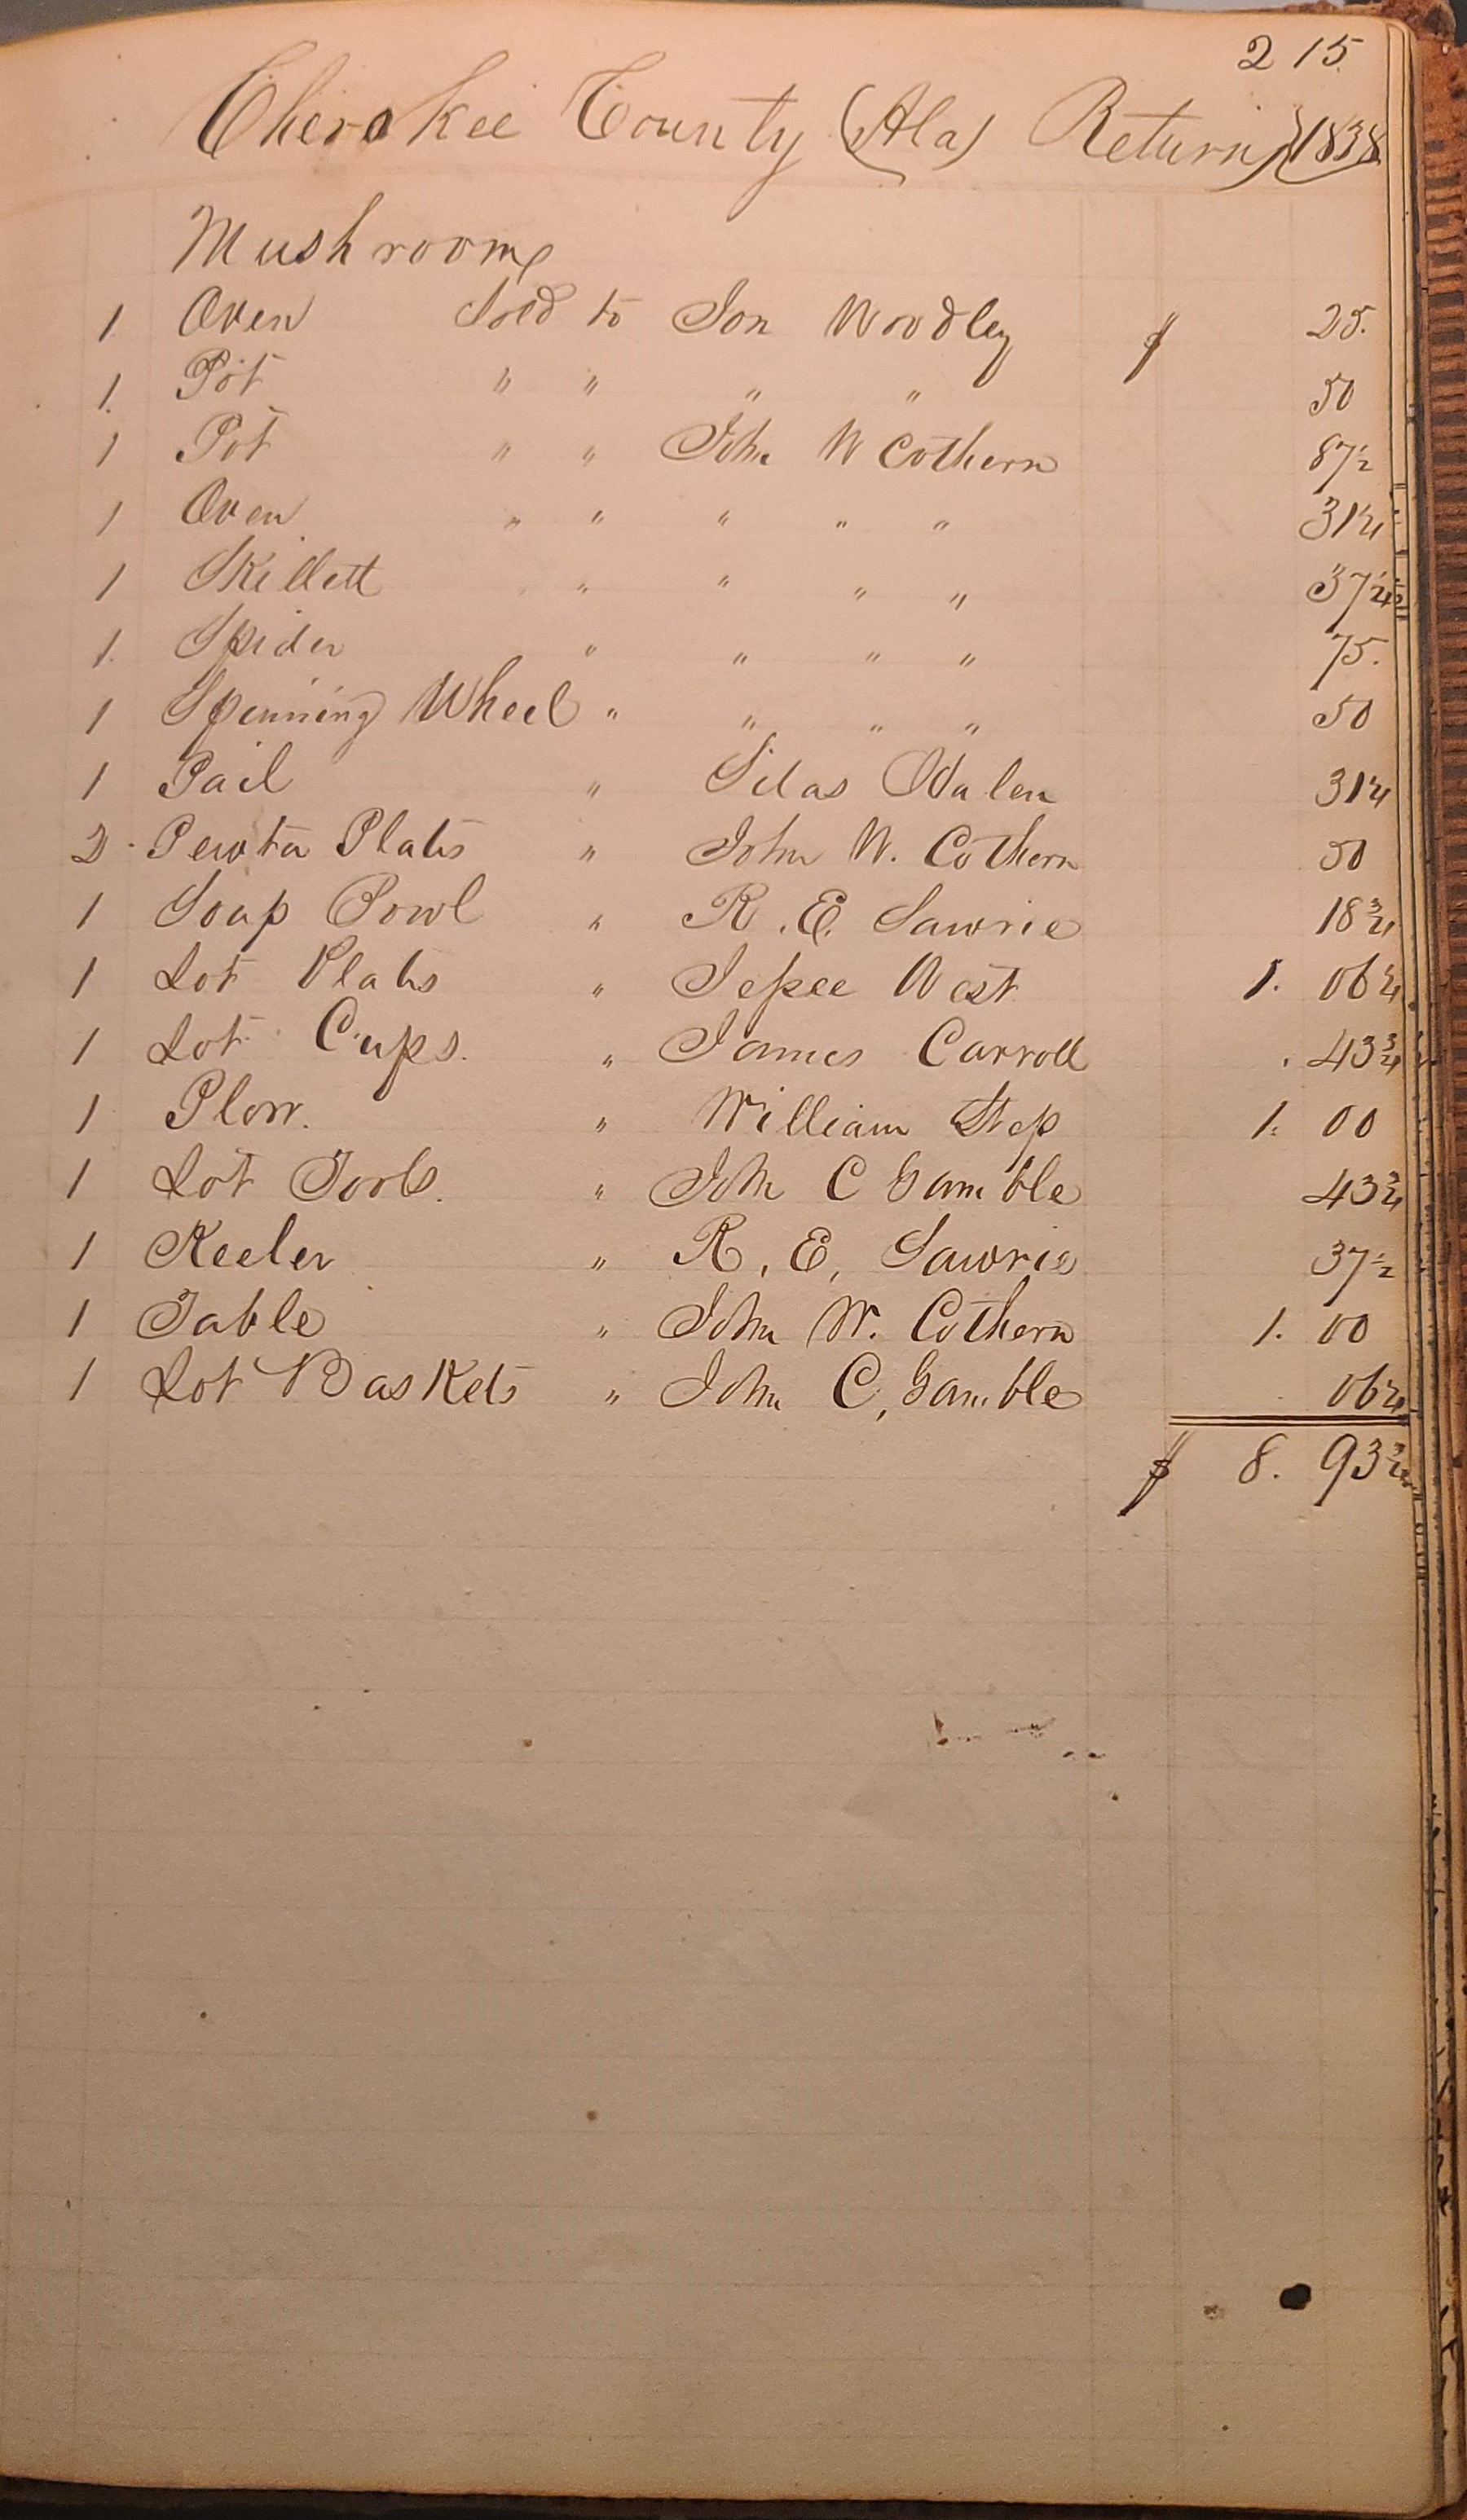 215.
Cherokee County (Ala) Return 1838
Mushroom
1 Oven Sold to Jon Woodley $ 25.
1. Pot " " " " 50
1 Pot " " John W Cothern 87½
1 Oven " " " " " 31¼
1 Skillett " " " " 37½
1. Spider " " " " 75.
1 Spinning Wheel " " " " 50
1 Pail " Silas 31¼
2 Pewter Plates " John W. Cothern 50
1 Soap Bowl " R. E. Sawrie 18¾
1 Lot Plates " Jessee West 1. 06¼
1 Lot Cups. " James Carroll . 43¾
1 Plow. " William Step 1. 00
1 Lot Tools. " John C Gamble 43¾
1 Keeler " R. E. Sawrie 37½
1 Table " John W. Cothern 1. 00
1 Lot Baskets " John C, Gamble 06¼
$ 8. 93¾